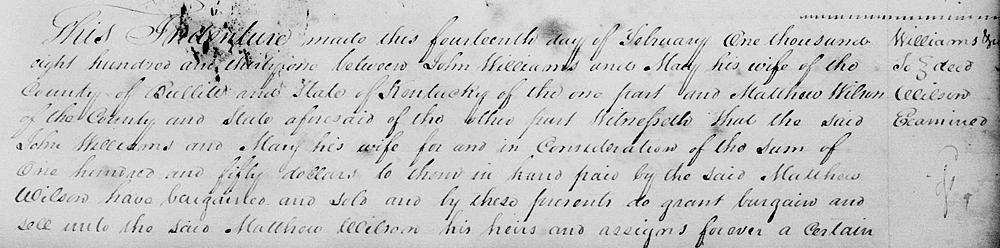 This Indenture made this fourteenth day of February One thousand
eight hundred and thirty one between John Williams and Mary his wife of the
County of Bullitt and State of Kentucky of the one part and Matthew Wilson
of the County and State aforesaid of the other part Witnesseth That the said
John Williams and Mary his wife for and in Consideration of the sum of
One hundred and fifty dollars to them in hand paid by the said Matthew
Wilson have bargained and sold and by these presents do grant bargain and
sell unto the said Matthew Wilson his heirs and assigns forever a Certain
Williams
To } deed
Wilson
Examined